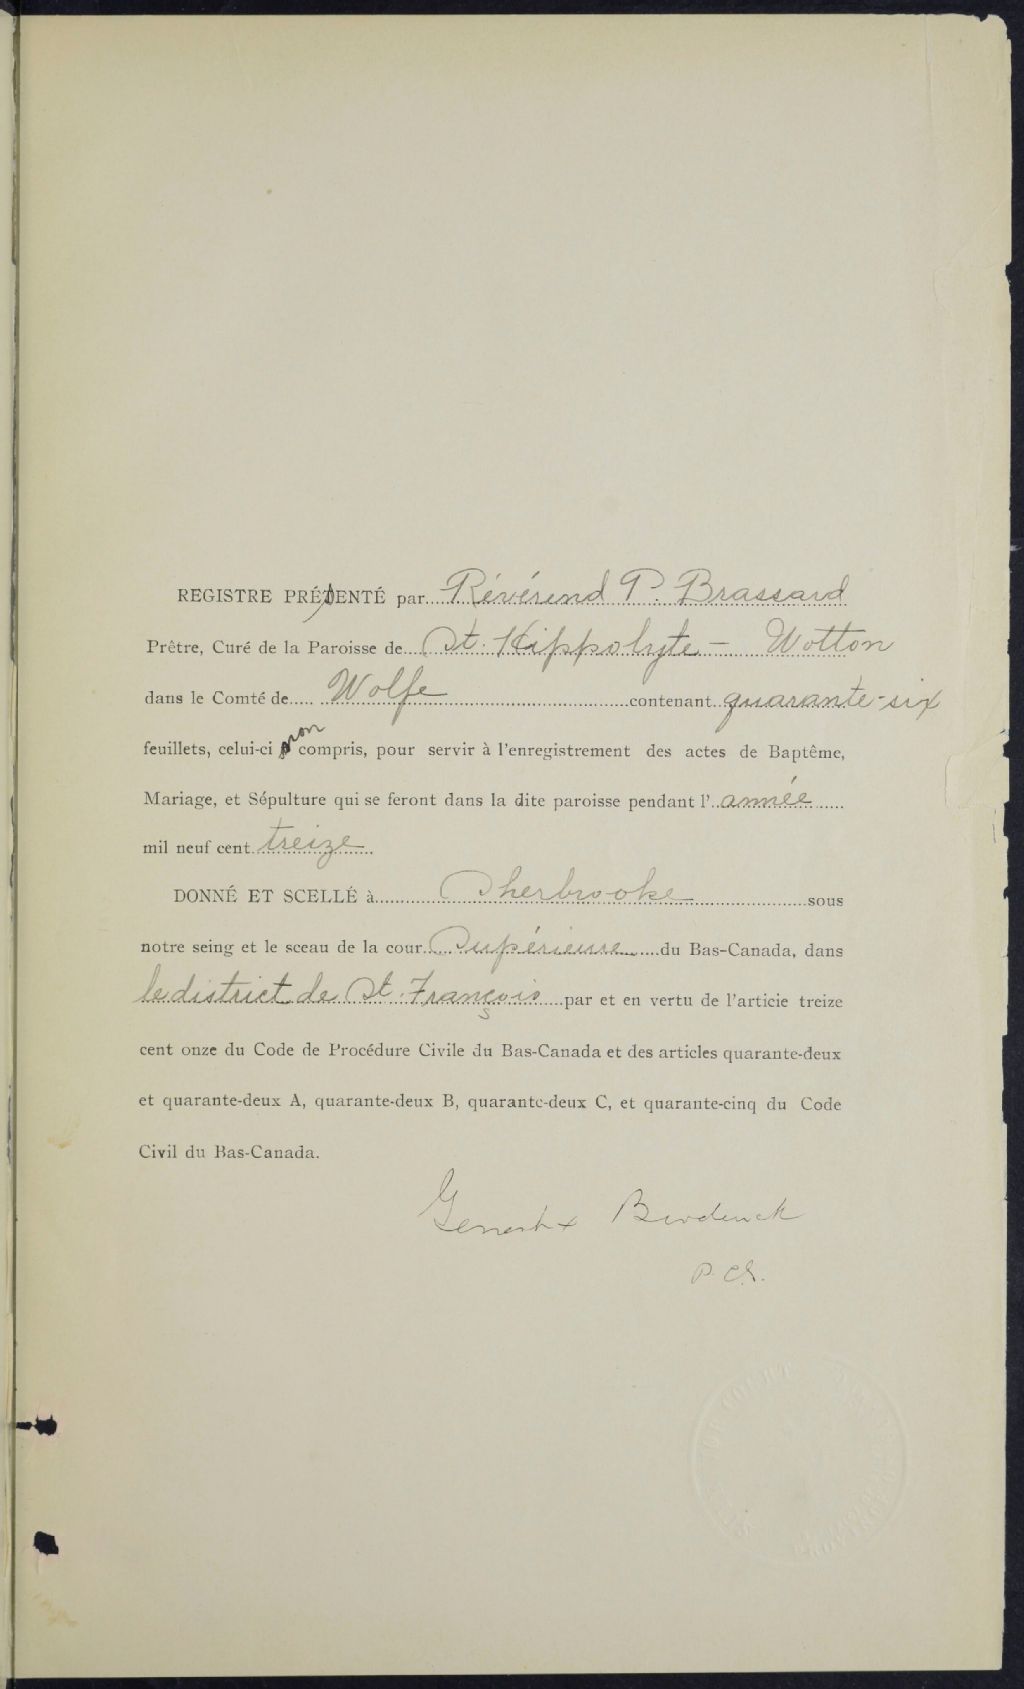 REGISTRE PRÉSENTÉ par Révérend P. Brassard
Prêtre, Curé de la Paroisse de St. Hippolyte - Wotton
dans le Comté de Wolfe contenant quarante-six
feuillets, celui-ci non compris, pour servir à l'enregistrement des actes de Baptême,
Mariage, et Sépulture qui se feront dans la dite paroisse pendant l'année
mil neuf cent treize
DONNÉ ET SCELLÉ à Sherbrooke sous
notre seing et le sceau de la cour Supérieure du Bas-Canada, dans
le district de St. François par et en vertu de l'articie treize
cent onze du Code de Procédure Civile du Bas-Canada et des articles quarante-deux
et quarante-deux A, quarante-deux B, quarante-deux C, et quarante-cinq du Code
Civil du Bas-Canada.
Genest &
P. C. S.